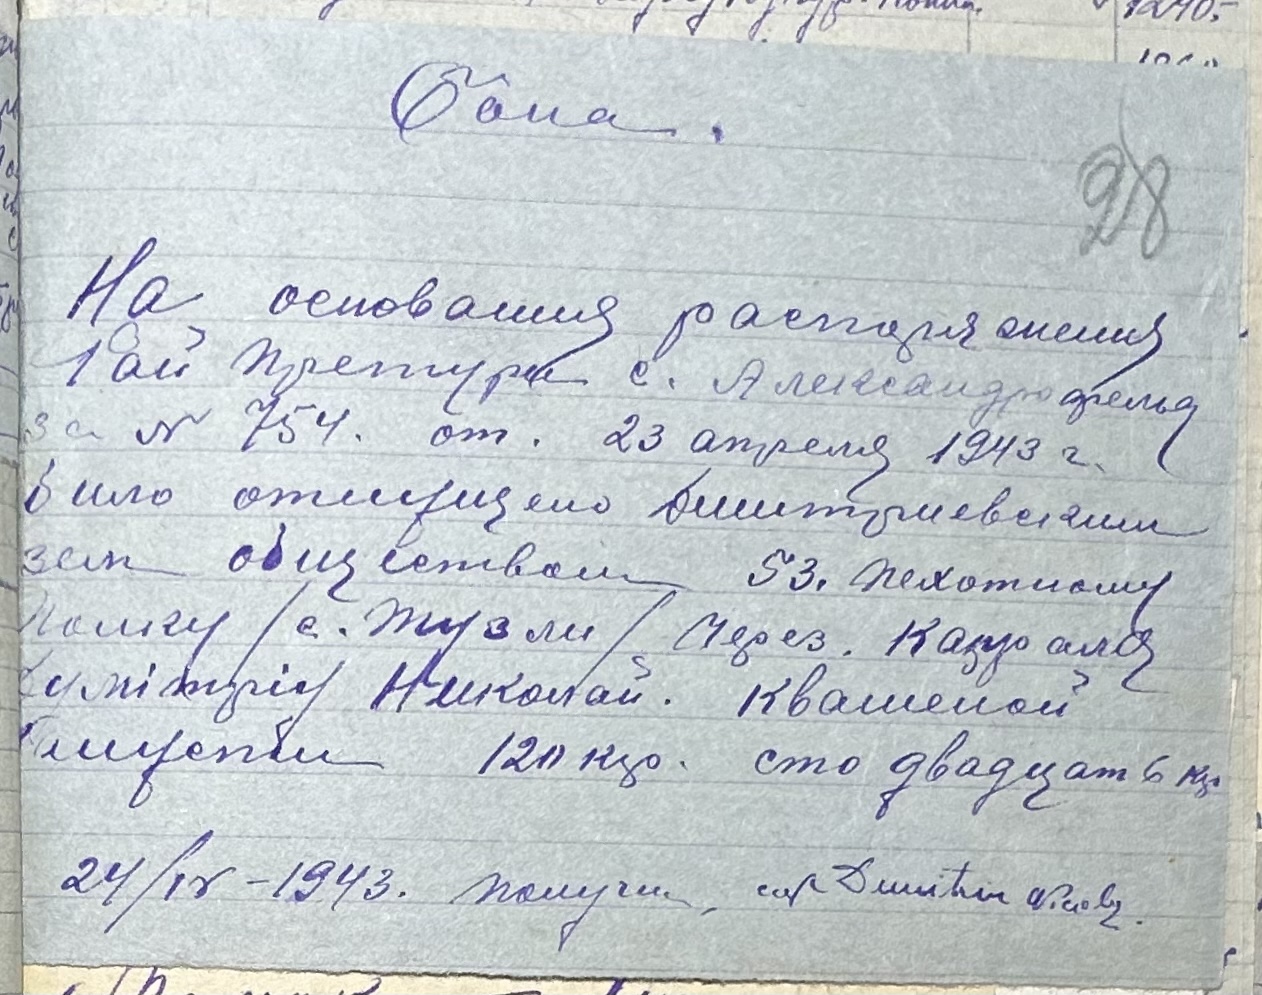 Бона.
28
На основания распоряжения
Рай Претура с. Александрофельд
за № 754. от. 23 апреля 1943 г.
было отпущено Дмитриевским
зем обществом 53. пехотному
Полку /с. Тузли/ Через. Капрала
Думітріу Николай. Квашеной
Капусти 120 кгр. сто двадцать кг.
24/IV-1943. получил, cap Dumitriu Nicolae.
1240.-